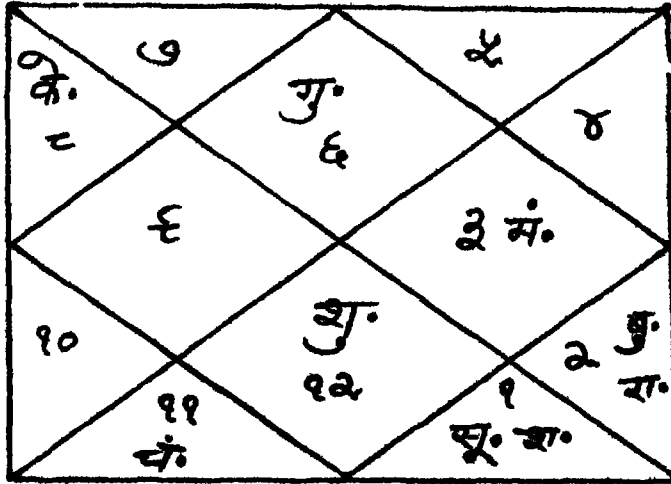 ७
५
के.
८
गु.
६
४
९
३ मं.
१०
शु.
१२
२ बु.
रा.
११
चं.
१
सू. श.